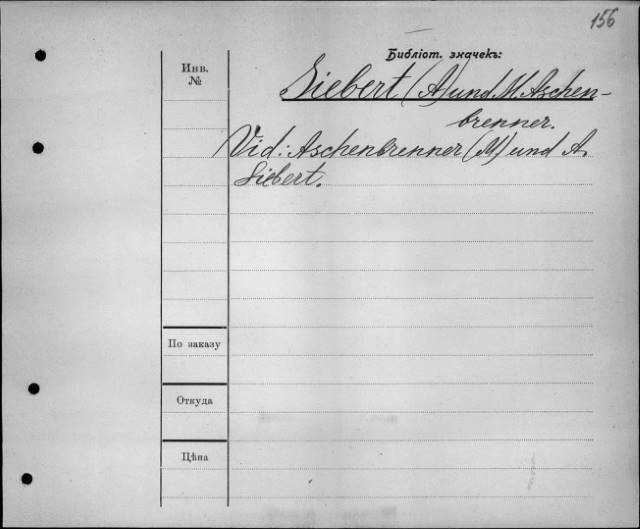 156
Библіот. значекъ:
Инв.
№
Siebert (A) und M. Aschen-
brenner.
Vid: Aschenbrenner (M) und A.
Siebert.
По заказу
Откуда
Цѣна